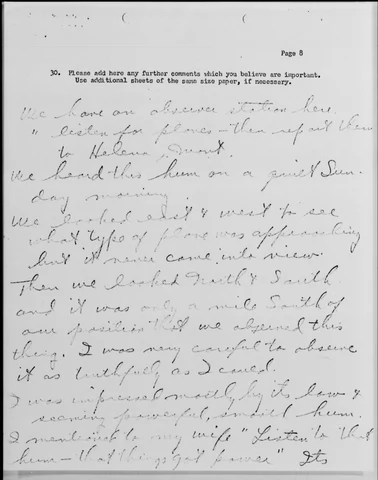 Page 8
30. Please add here any further comments which you believe are important.
Use additional sheets of the same size paper, if necessary.
We have an observer station here
" listen for planes - then report them
to Helena, Mont.
We heard this hum on a quiet Sun-
day morning.
We looked east & west to see
what type of plane was approaching
but it never came into view.
Then we looked North & South
and it was only a mile South of
our position that we observed this
thing. I was very careful to observe
it as truthfully as I could.
I was impressed mostly by its low &
seeming powerful, smooth hum.
I mentioned to my wife "Listen to that
hum - that things got power" Its